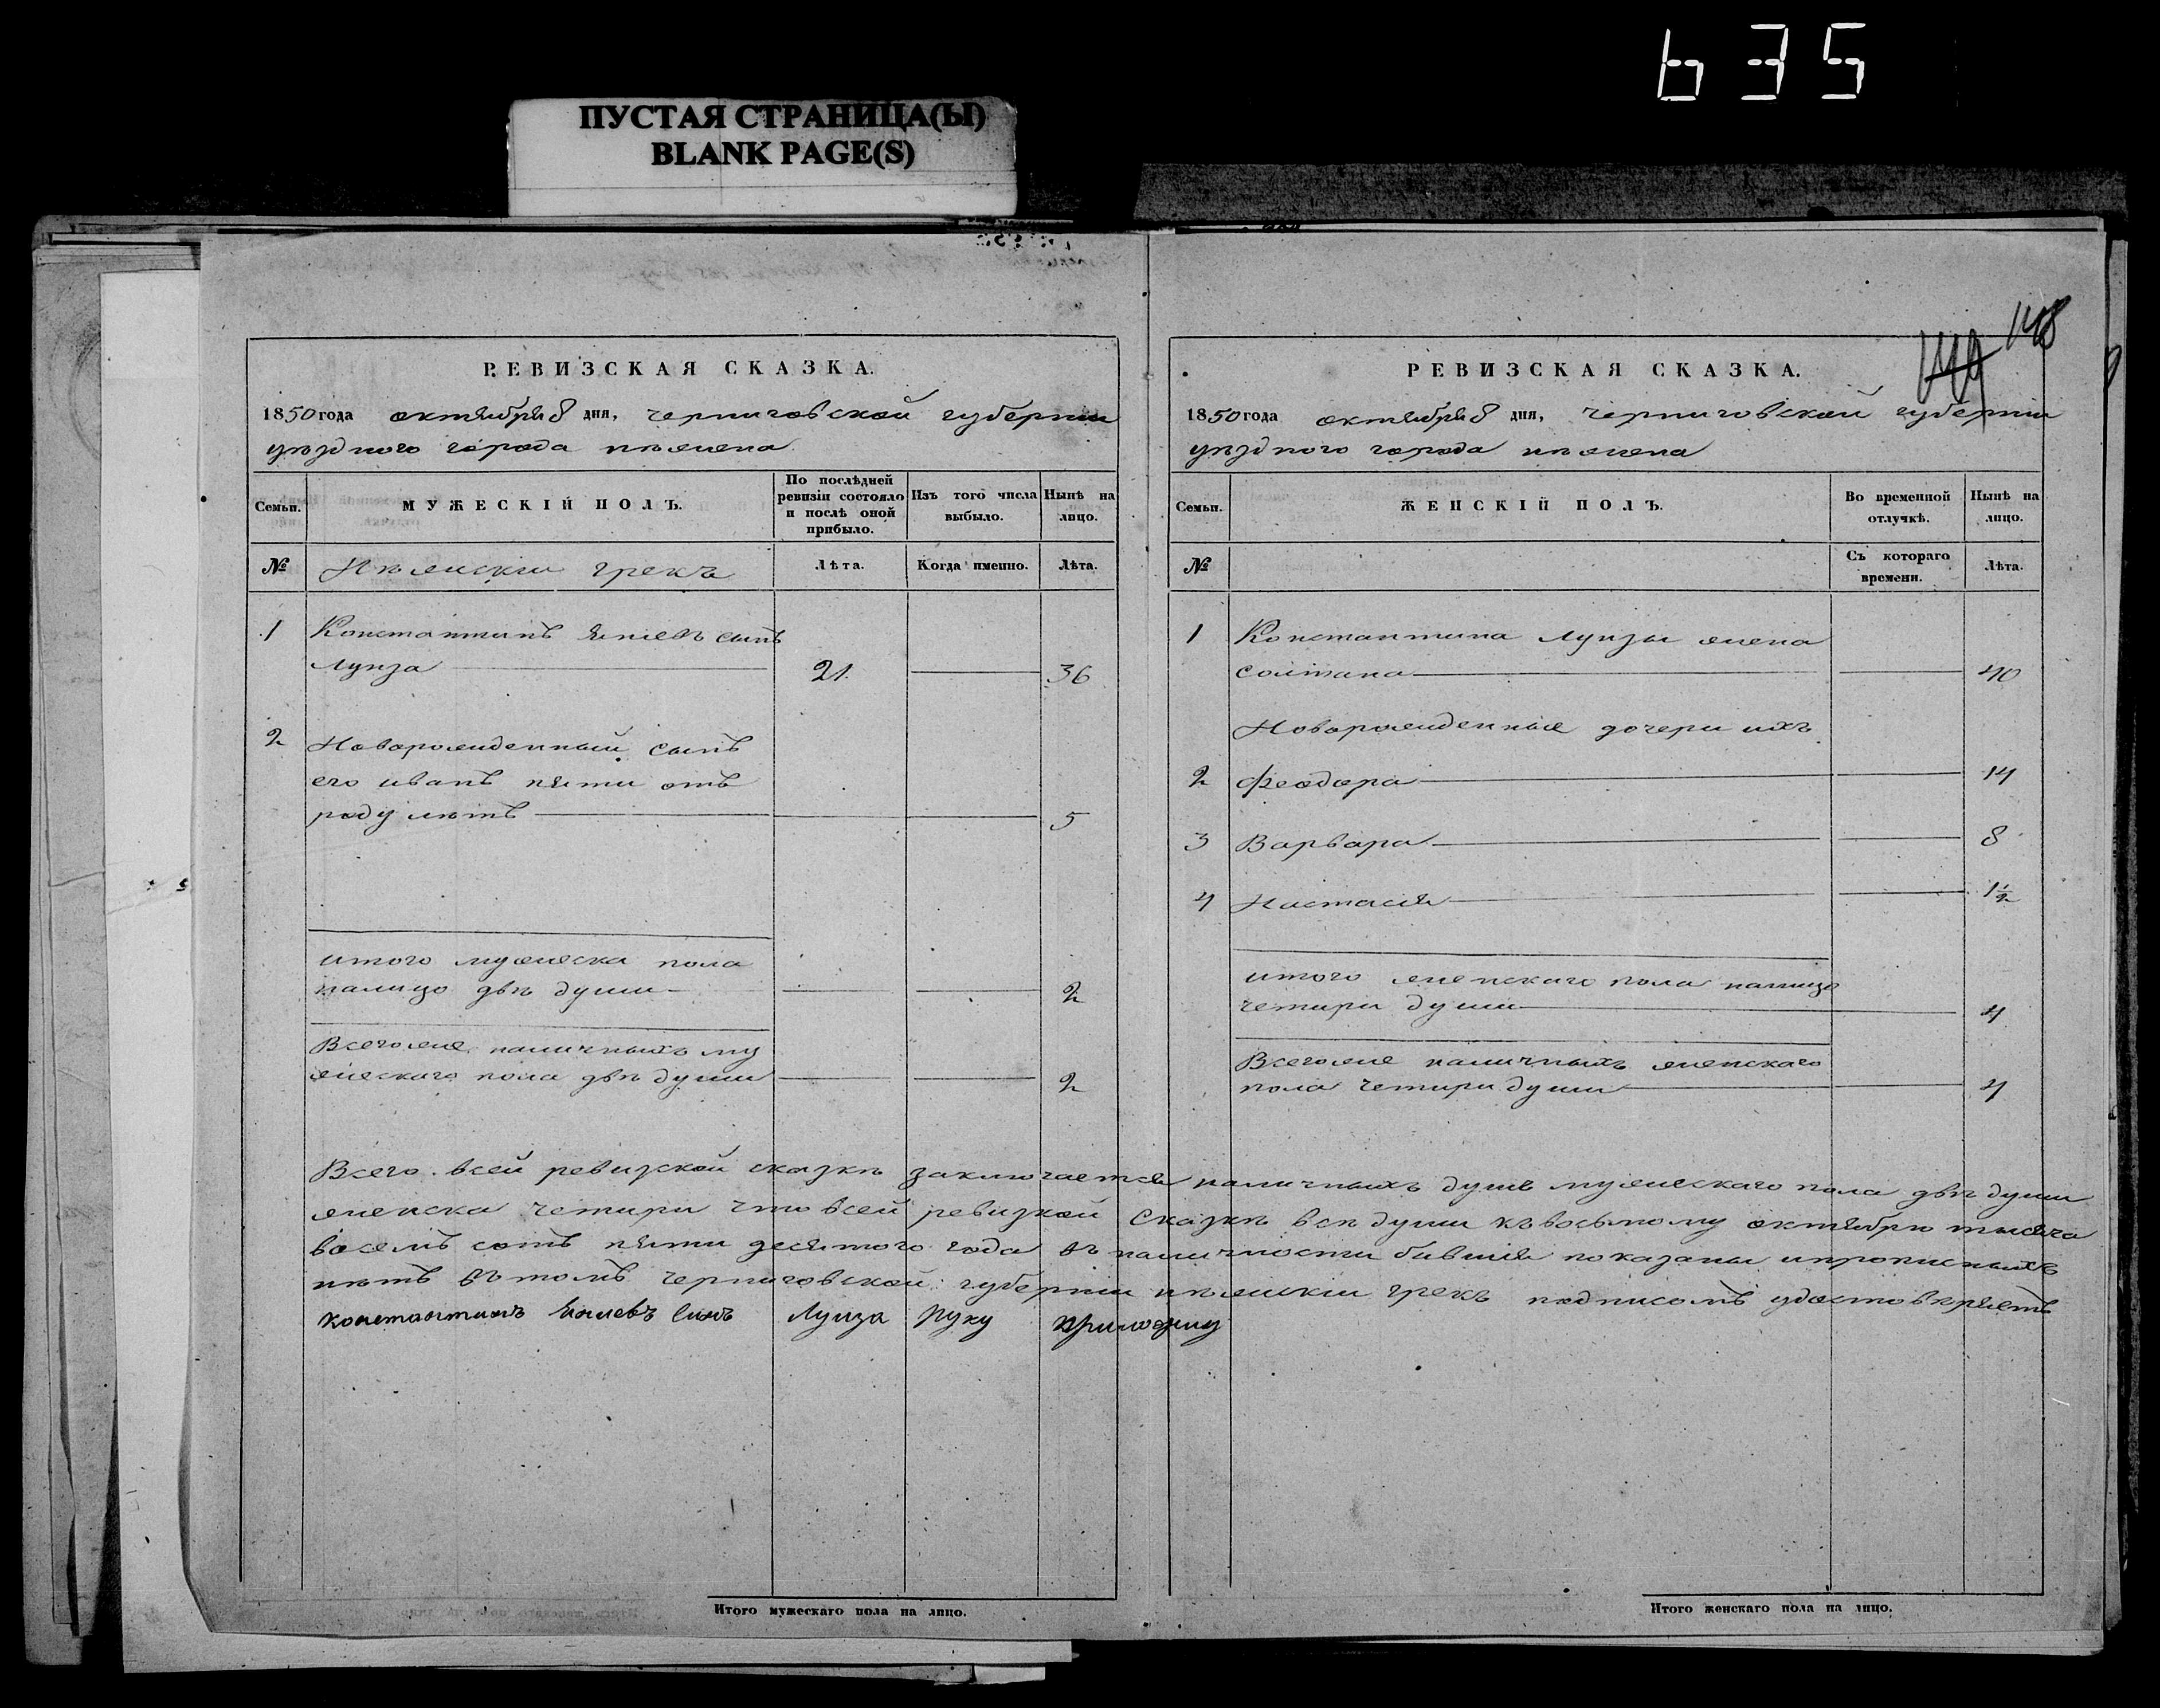 635
ПУСТАЯ СТРАНИЦА(Ы)
BLANK PAGE(S)
148
РЕВИЗСКАЯ СКАЗКА.
1850 года октября 8 дня, черниговской губернии
уѣздного города нѣжена
Семьи.
МУЖЕСКІЙ ПОЛЪ.
По послѣдней ревизіи состояло и послѣ оной прибыло.
Изъ того числа выбыло.
Нынѣ на лицо.
№
Нѣжискии грекъ
Лѣта.
Когда именно.
Лѣта.
1 Константинъ Яниевъ сынъ
Лунза 21. 36
2 Новорожденный сынъ
его иванъ пяти отъ
роду лѣтъ 5
итого мужеска пола
налицо двѣ души 2
Всегоже наличныхъ му
жескаго пола двѣ души 2
РЕВИЗСКАЯ СКАЗКА.
1850 года октября 8 дня, черниговской губернии
уѣздного города нѣжена
Семьи.
ЖЕНСКІЙ ПОЛЪ.
Во временной отлучкѣ.
Нынѣ на лицо.
№
Съ котораго времени.
Лѣта.
1 Константина Лунзы жена
солтана 40
Новорожденные дочери ихъ
2 Феодора 14
3 Варвара 8
4 Настасія 1½
итого женскаго пола налицо
четыри души 4
Всегоже наличныхъ женскаго
пола четыри души 4
Всего всей ревизской сказкѣ заключается наличныхъ душъ мужескаго пола двѣ души
женска четыри что всей ревизкой сказкѣ всѣ души къ восьмому октября тысяча
восемъ сотъ пяти десятого года въ наличности бившія показаны ипрописныхъ
нѣтъ въ томъ черниговской губернии нѣжискии грекъ подписомъ удостовѣряетъ
константинъ Яниевъ Синъ Лунза Руку приложилъ
Итого мужескаго пола на лицо.
Итого женскаго пола на лицо.